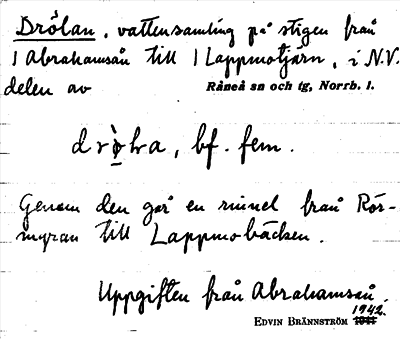 Drölan, vattensamling på stigen från
1 Abrahamsån till 1 Lappmotjärn, i N.V.
delen av Råneå sn och tg, Norrb. l.
bf. fem.
Genom den går en rinnel från Rör-
myran till Lappmobäcken.
Uppgiften från Abrahamsån.
EDVIN BRÄNNSTRÖM 1942.